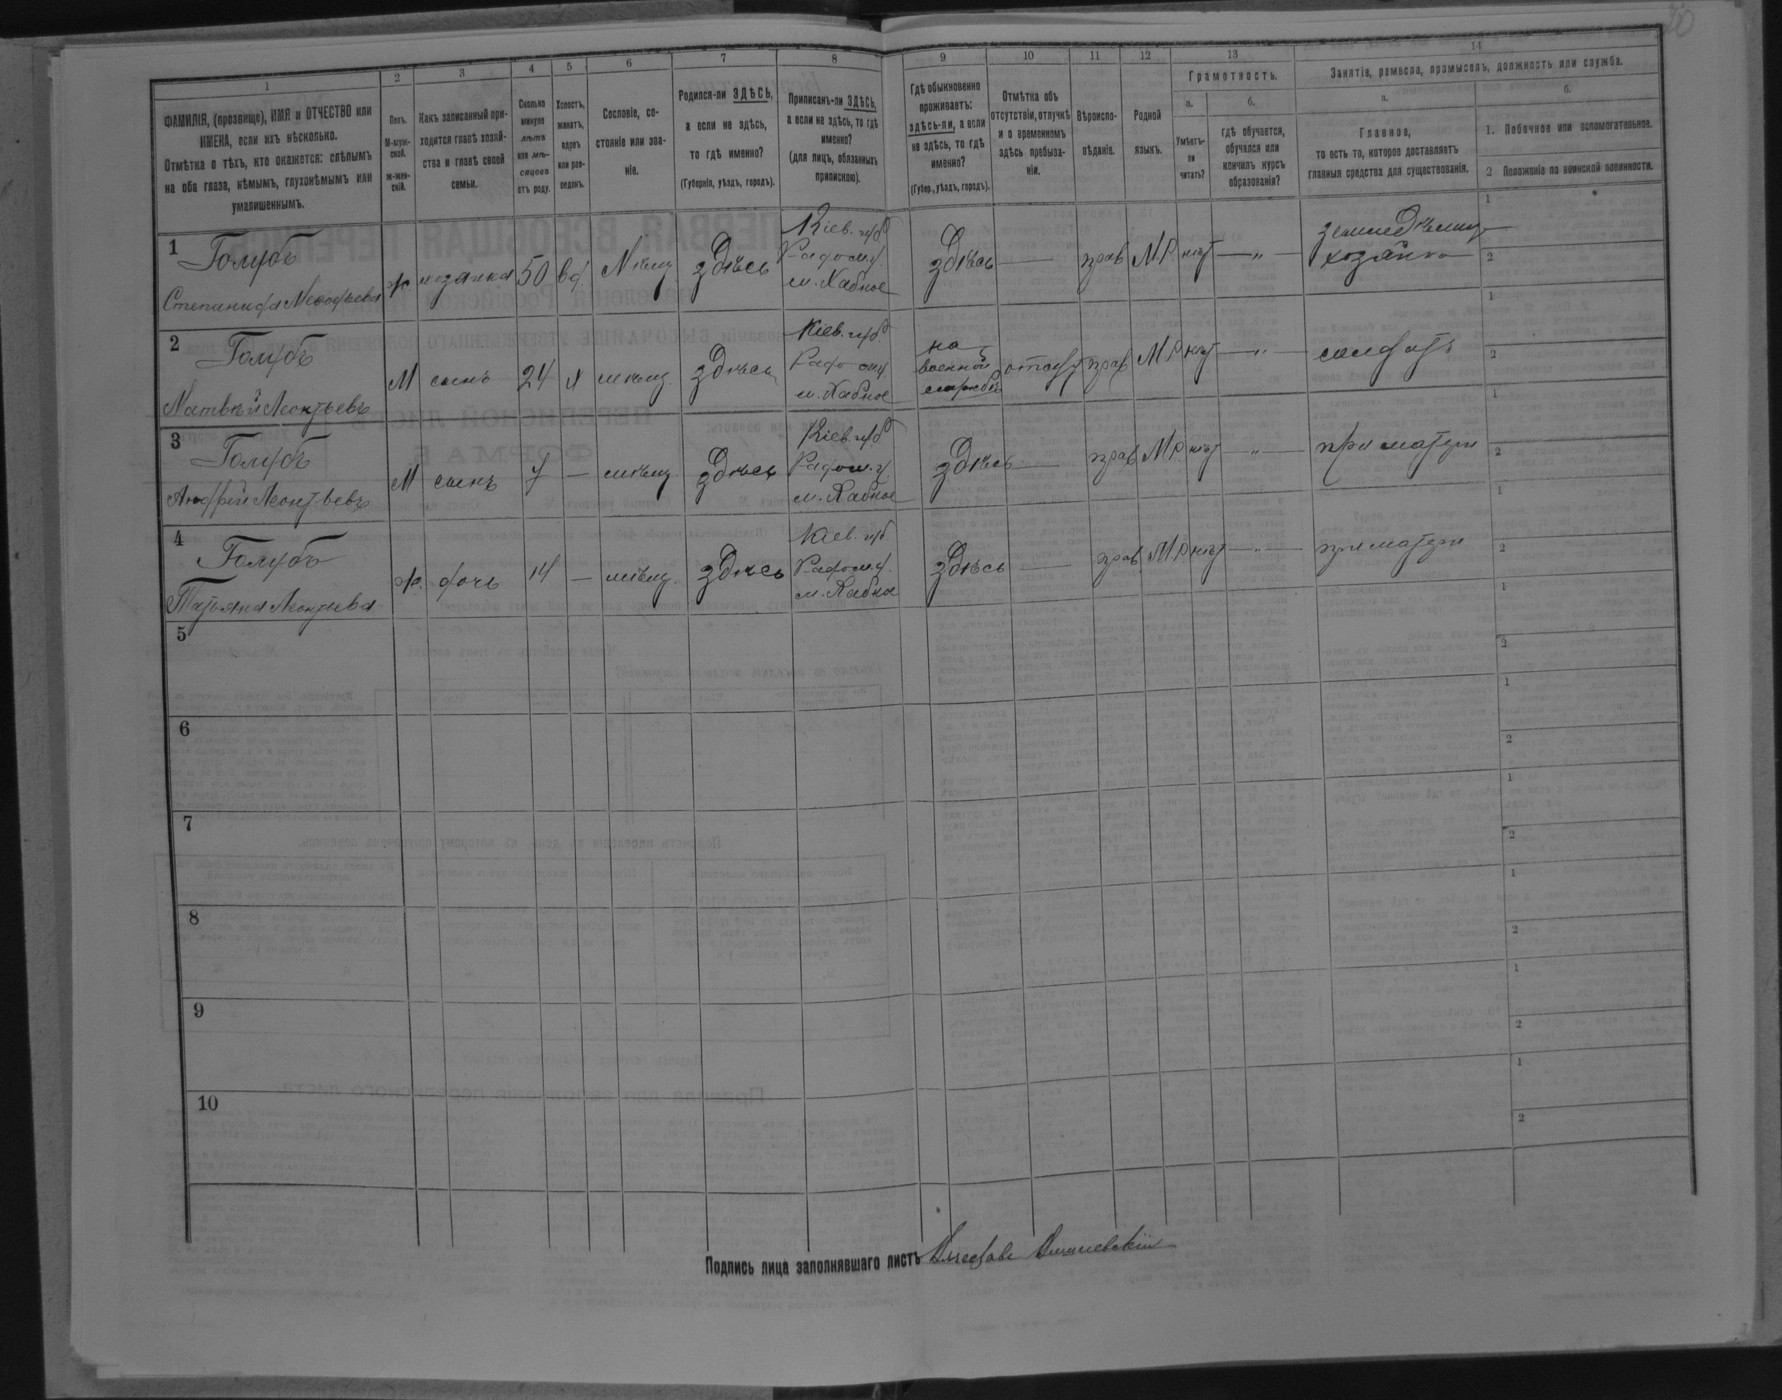 1
2
3
4
5
6
7
8
9
10
11
12
13
14
ФАМИЛІЯ, (прозвище), ИМЯ и ОТЧЕСТВО или
ИМЕНА, если ихъ нѣсколько.
Отмѣтка о тѣхъ, кто окажется: слѣпымъ
на оба глаза, нѣмымъ, глухонѣмымъ или
умалишеннымъ.
Полъ.
М-муж-
ской.
ж-жен-
скій.
Какъ записанный при-
ходится главѣ хозяй-
ства и главѣ своей
семьи.
Сколько
минуло
лѣтъ
или мѣ-
сяцевъ
отъ роду.
Холостъ,
женатъ,
вдовъ
или раз-
веденъ.
Сословіе, со-
стояніе или зва-
ніе.
Родился-ли ЗДѢСЬ,
а если не здѣсь,
то гдѣ именно?
(Губернія, уѣздъ, городъ).
Приписанъ-ли ЗДѢСЬ,
а если не здѣсь, то гдѣ
именно?
(для лицъ, обязанныхъ
припискою).
Гдѣ обыкновенно
проживаетъ:
здѣсь-ли, а если
не здѣсь, то гдѣ
именно?
(Губер., уѣздъ, городъ).
Отмѣтка объ
отсутствіи, отлучкѣ
и о временномъ
здѣсь пребыва-
ніи.
Вѣроиспо-
вѣданіе.
Родной
языкъ.
Грамотность.
а.
б.
Умѣетъ-
ли
читать?
гдѣ обучается,
обучался или
кончилъ курсъ
образованія?
Занятія, ремесла, промыселъ, должность или служба.
а.
б.
Главное,
то есть то, которое доставляетъ
главныя средства для существованія.
1. Побочное или вспомогательное.
2 Положеніе по воинской повинности.
1
Голубъ
Степанида
ж. хозяйка 50 вд. Мѣщ здѣсь
Кіев. губ
Радом. у.
м. Хабное
здѣсь — прав М.Р. нѣт — „ —
хозяйка
1
2
2
Голубъ
Матвѣй Леонтьевъ
М сынъ 24 х мѣщ. здѣсь
Кіев. губ.
Радом у
м. Хабное
на
военной
службѣ
отсут прав М.Р. нѣт — „ —
солдатъ
1
2
3
Голубъ
Андрей Леонтьевъ
М сынъ 7 — мѣщ. здѣсь
Кіев губ
Радом. у
м. Хабное
здѣсь — прав М.Р. нѣт — „ — при матери
1
2
4
Голубъ
Татьяна Леонтьева
ж. дочь 14 — мѣщ. здѣсь
Кіев. губ
Радом у.
м. Хабное
здѣсь — прав М.Р. нѣт — „ — при матери
1
2
5
1
2
6
1
2
7
1
2
8
1
2
9
1
2
10
1
2
Подпись лица заполнявшаго листъ